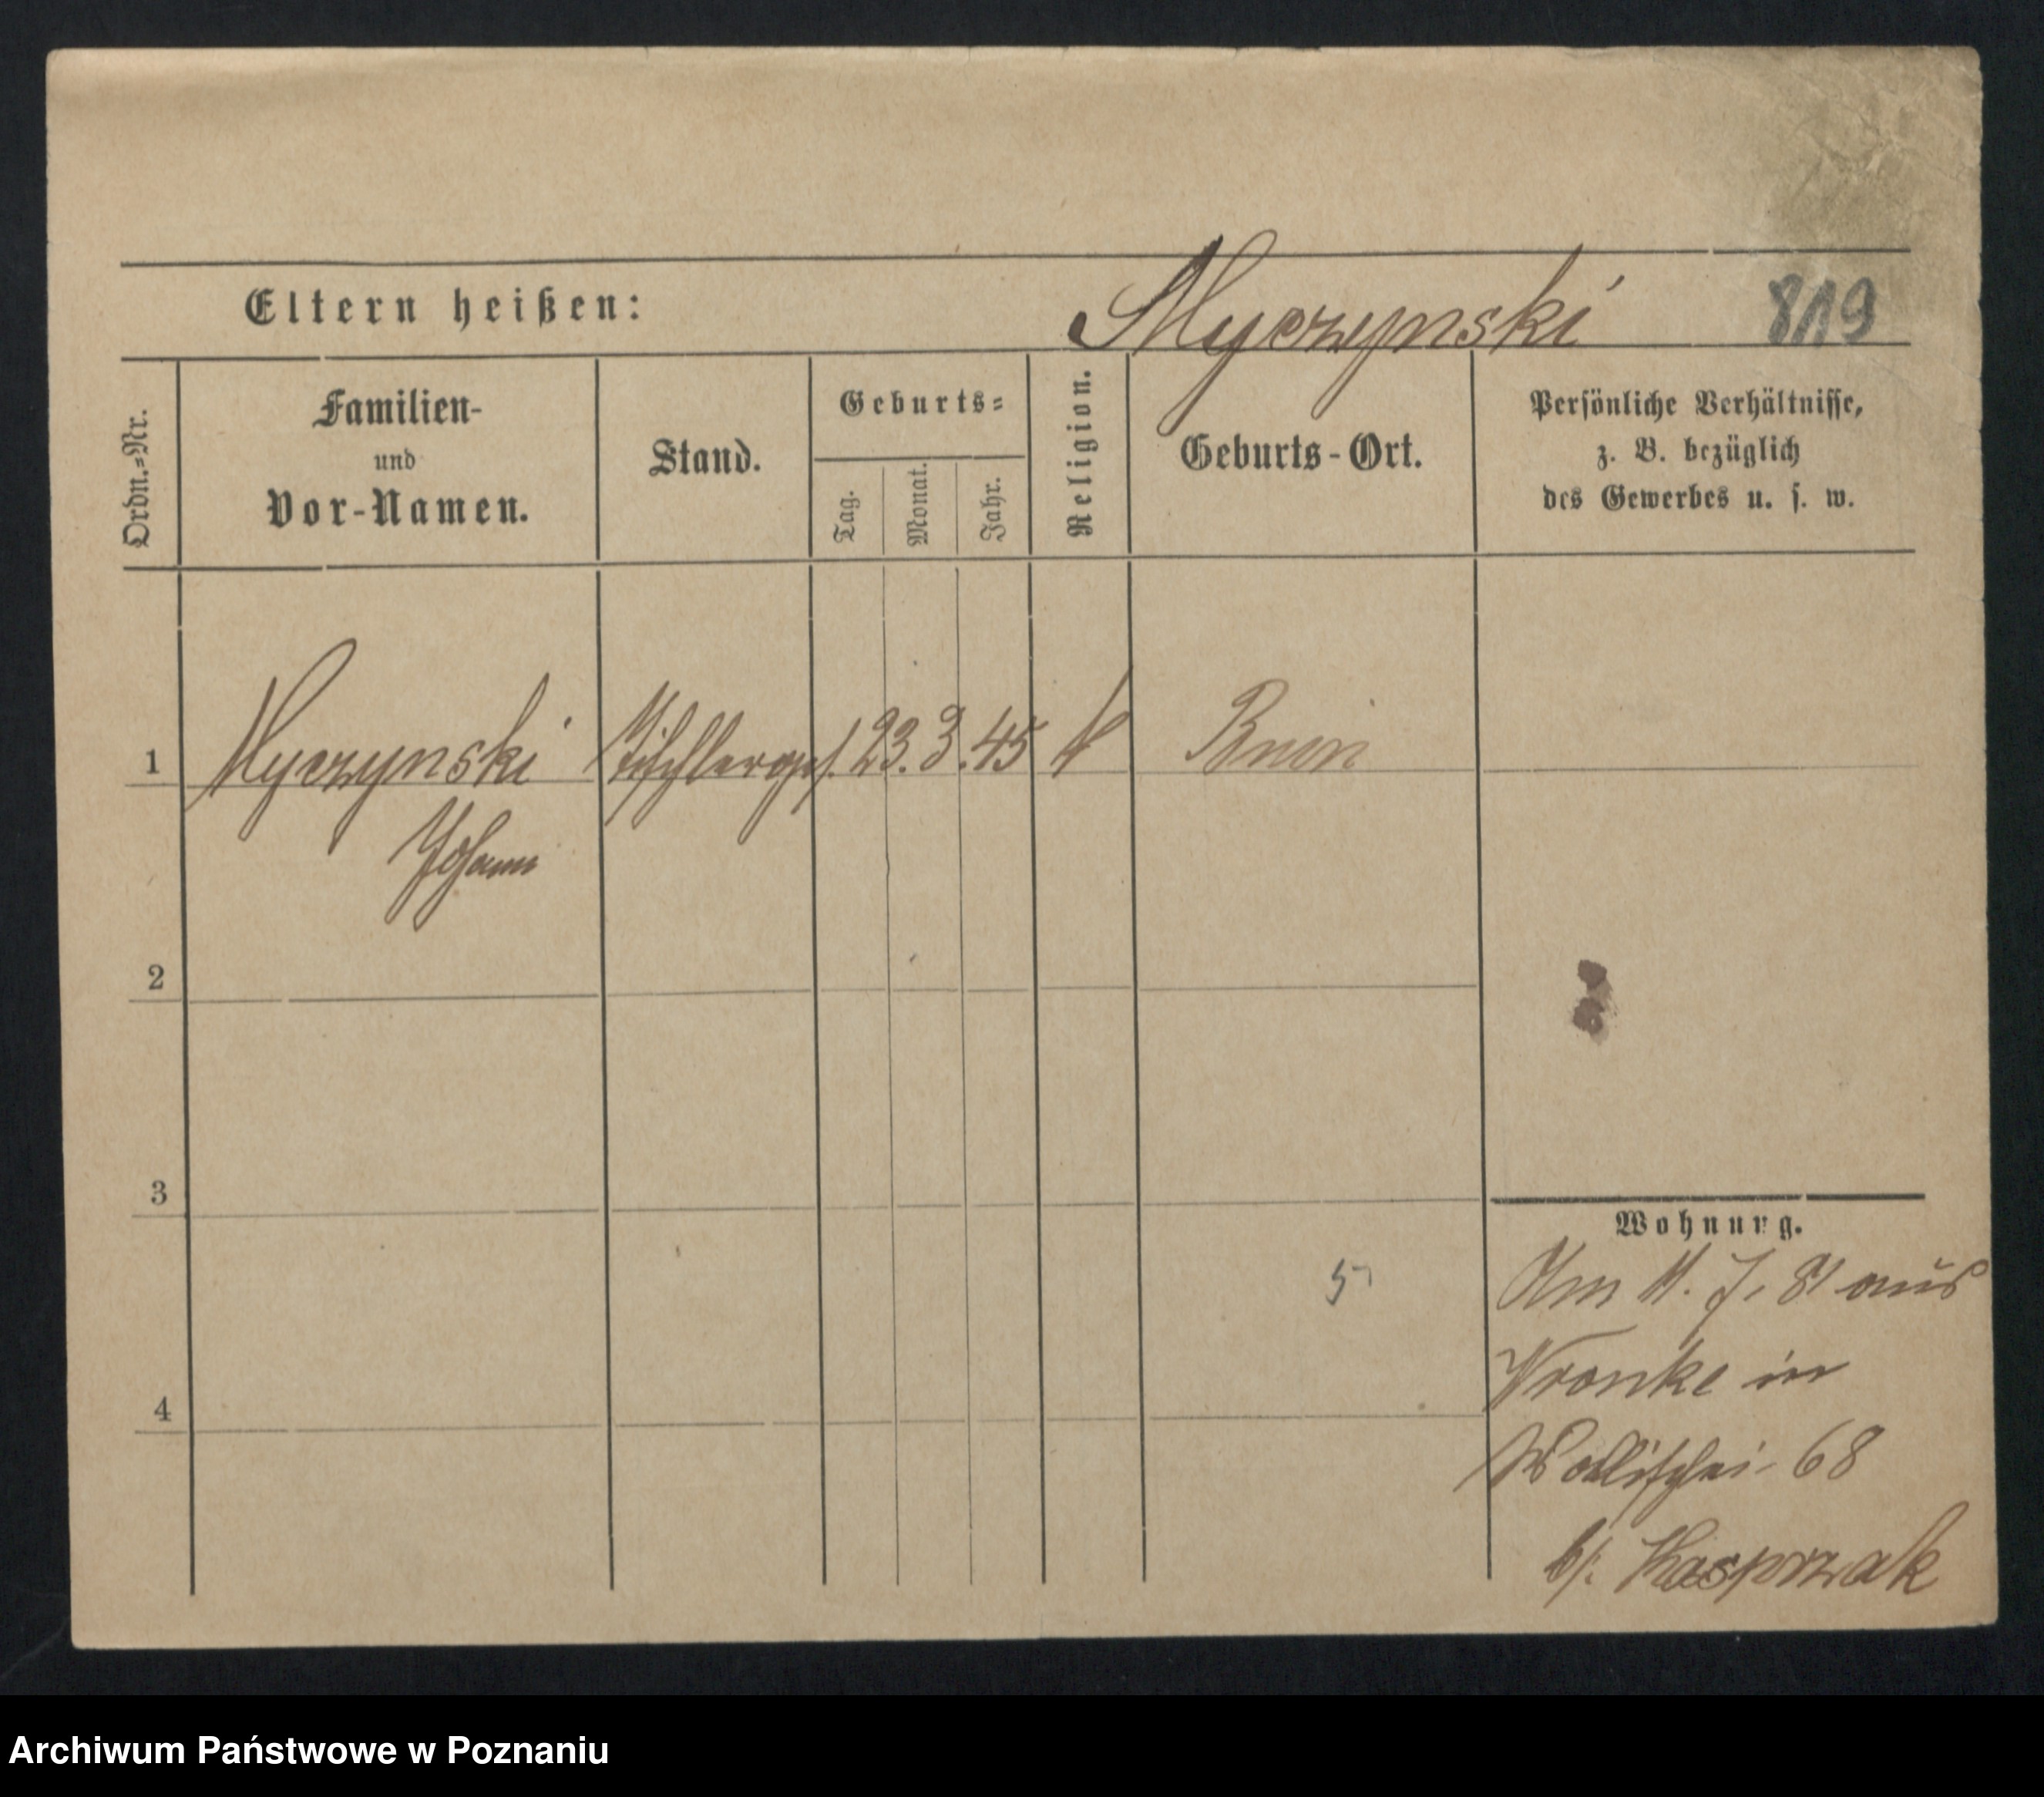 Eltern heißen: Myczynski 819
Ordn.=Nr.
Familien-
und
Vor-Namen.
Stand.
Geburts=
Tag.
Monat.
Jahr.
Religion.
Geburts-Ort.
Persönliche Verhältnisse,
z. B. bezüglich
des Gewerbes u. s. w.
1 Myczynski Tischlerges. 23. 3. 45 k Bnin
Johann
2
3
Wohnung.
5
Am 11. 7. 81 aus
Wronke in
4
Wallischei 68
b/: Kasprzak
Archiwum Państwowe w Poznaniu